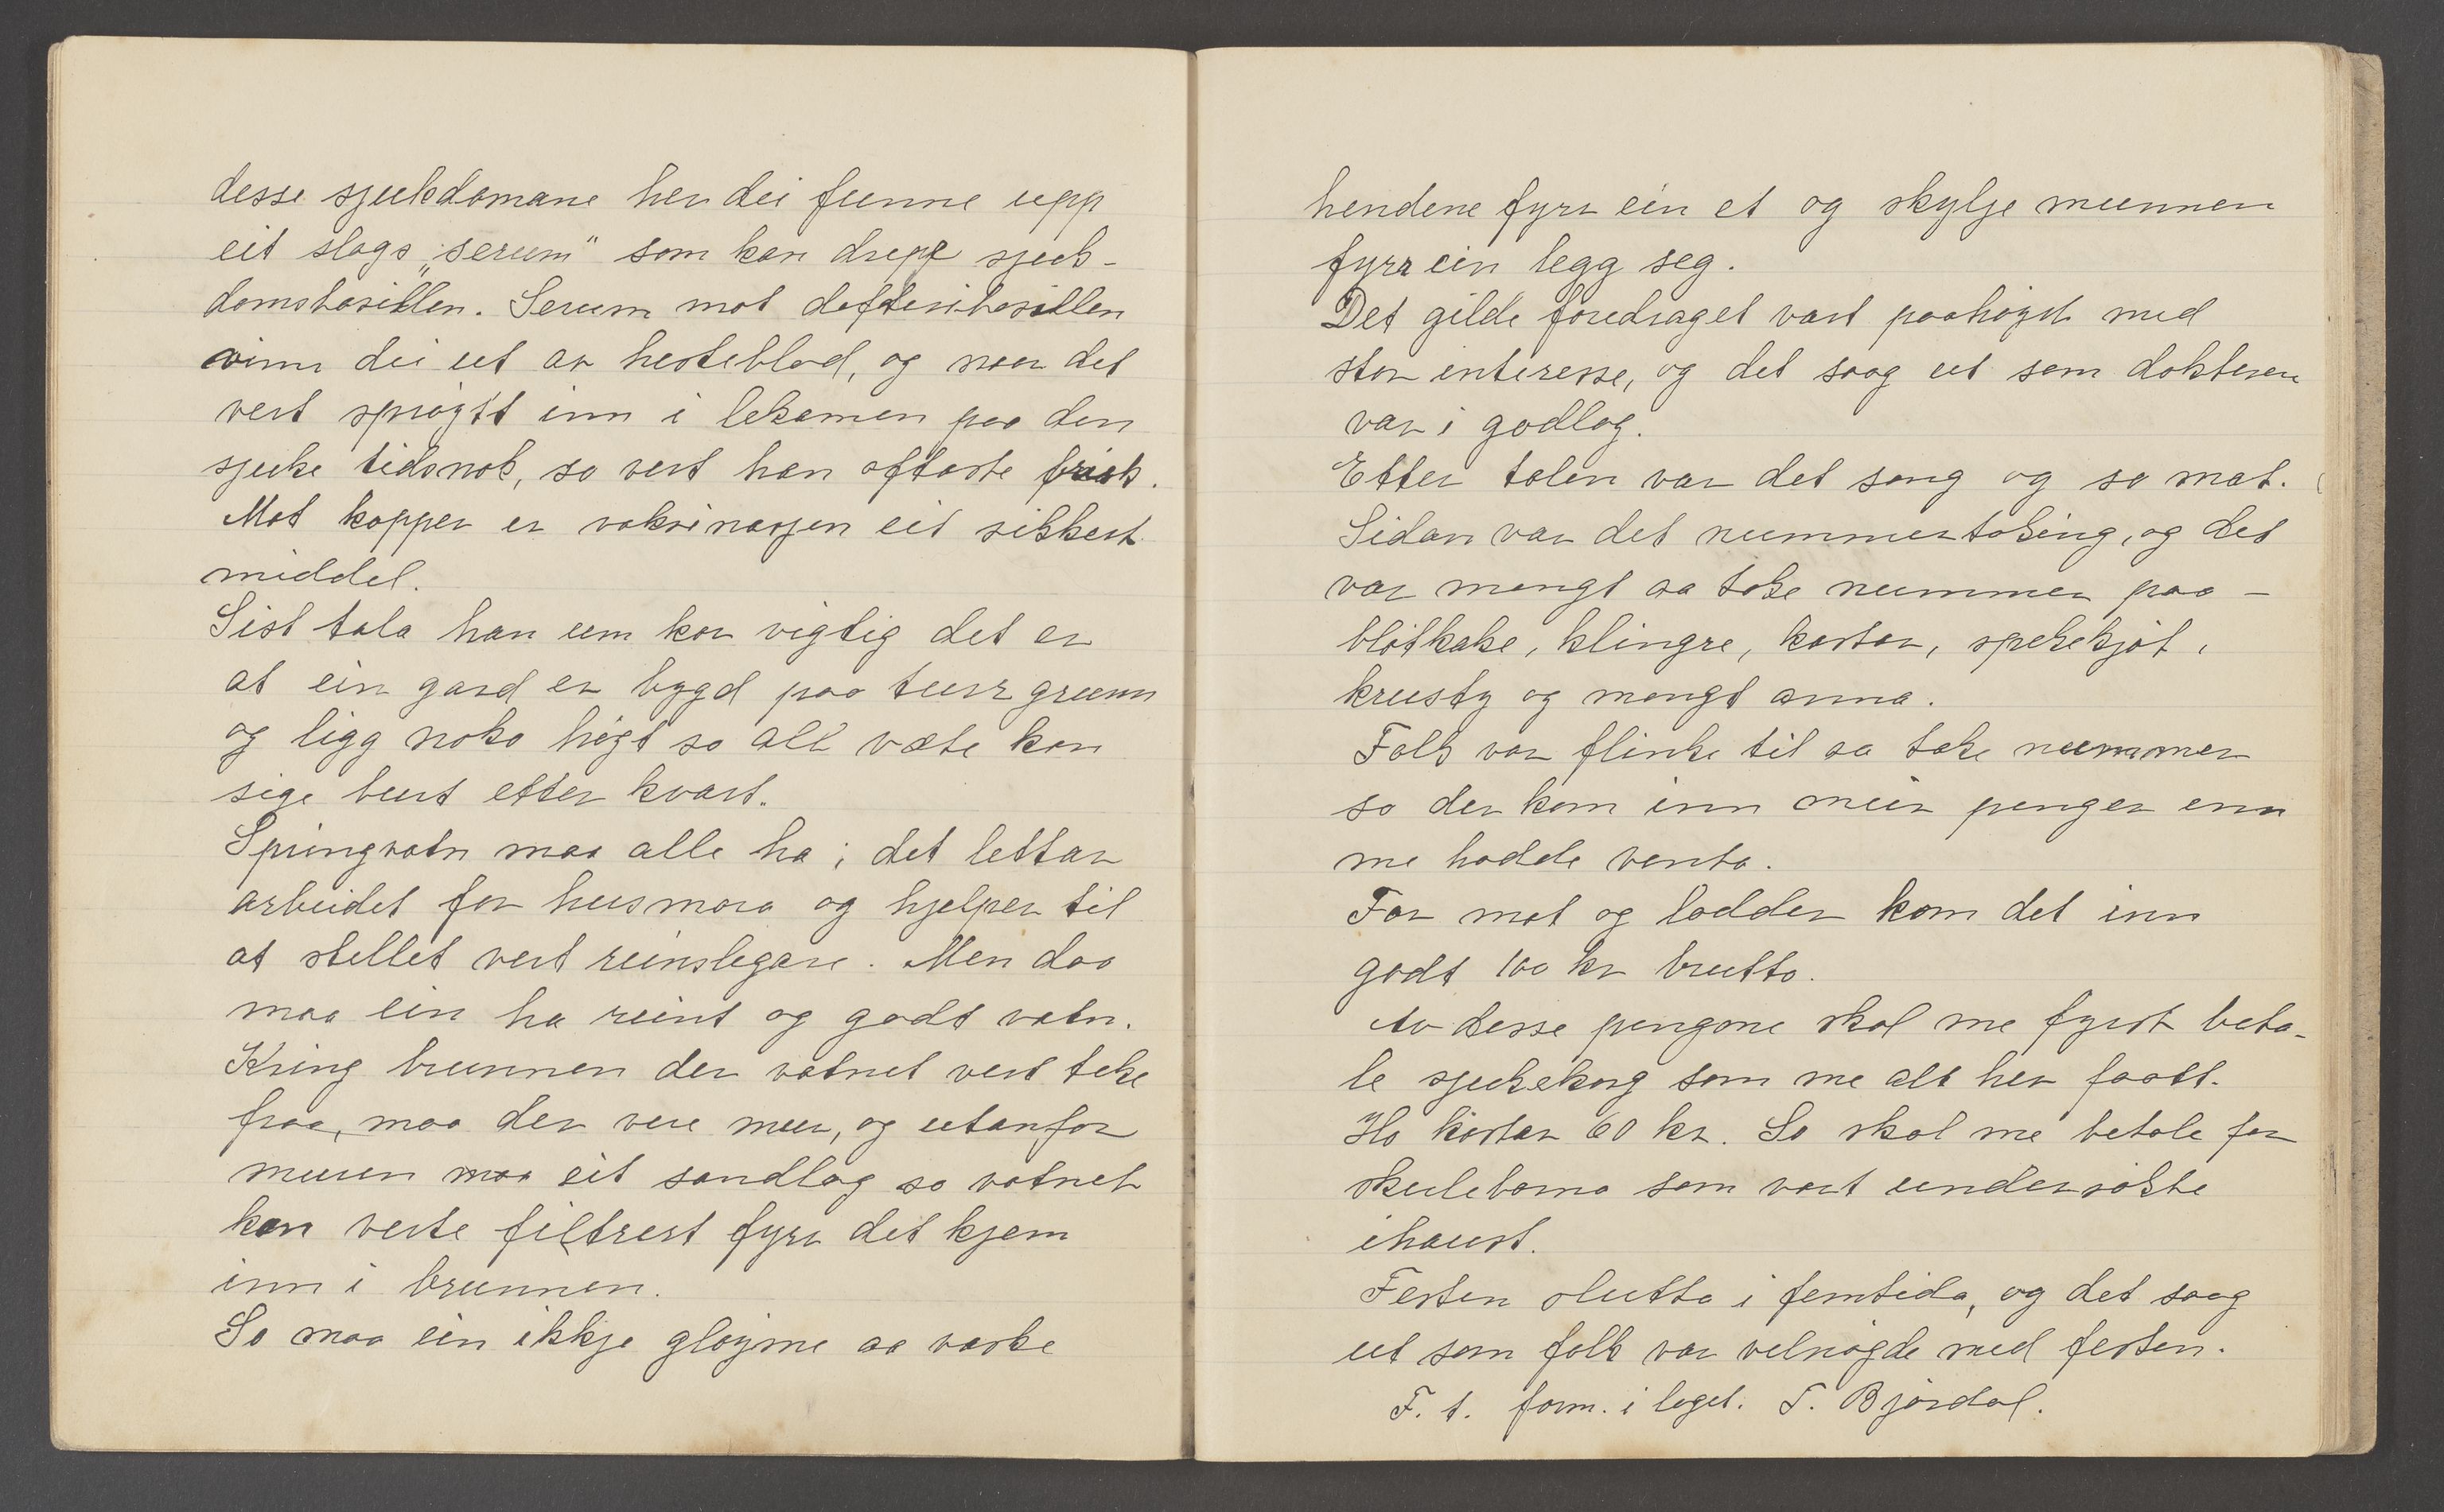 desse sjukdomane her dei funne upp
eit slags „serum" som kan drepe sjuk-
domsbasillen. Serum mot difteribasillen
vinn dei ut av hesteblod, og naar det
vert spröjtt inn i lekamen paa den
sjuke tidsnok, so vert han oftaste frisk.
Mot kopper er vaksinasjen eit sikkert
middel.
Sist tala han um kor vigtig det er
at ein gard er bygd paa turr grunn
og ligg noko högt so all væte kan
sige burt etter kvart.
Springvatn maa alle ha; det lettar
arbeidet for husmora og hjelper til
at stellet vert reinslegare. Men daa
maa ein ha reint og godt vatn.
Kring brunnen der vatnet vert teke
fraa, maa der vere mur, og utanfor
muren maa eit sandlag so vatnet
kan verte filtrert fyrr det kjem
inn i brunnen.
So maa ein ikkje glöyme aa vaske
hendene fyrr ein et og skylje munnen
fyrr ein legg seg.
Det gilde foredraget vart paahöyrt med
stor interesse, og det saag ut som dokteren
var i godlag.
Etter talen var det song og so mat.
Sidan var det nummertaking, og det
var mangt aa take nummer paa –
blötkake, klingre, kostar, spekekjöt,
krusty og mangt anna.
Folk var flinke til aa take nummer
so der kom inn meir pengar enn
me hadde venta.
For mat og lodder kom det inn
godt 100 kr brutto.
Av desse pengane skal me fyrst beta-
le sjukekorg som me alt her faatt.
Ho kostar 60 kr. So skal me betale for
skuleborna som vart undersökte
ihaust.
Festen slutta i femtida, og det saag
ut som folk var velnögde med festen.
F. t. form. i laget. T. Björdal.